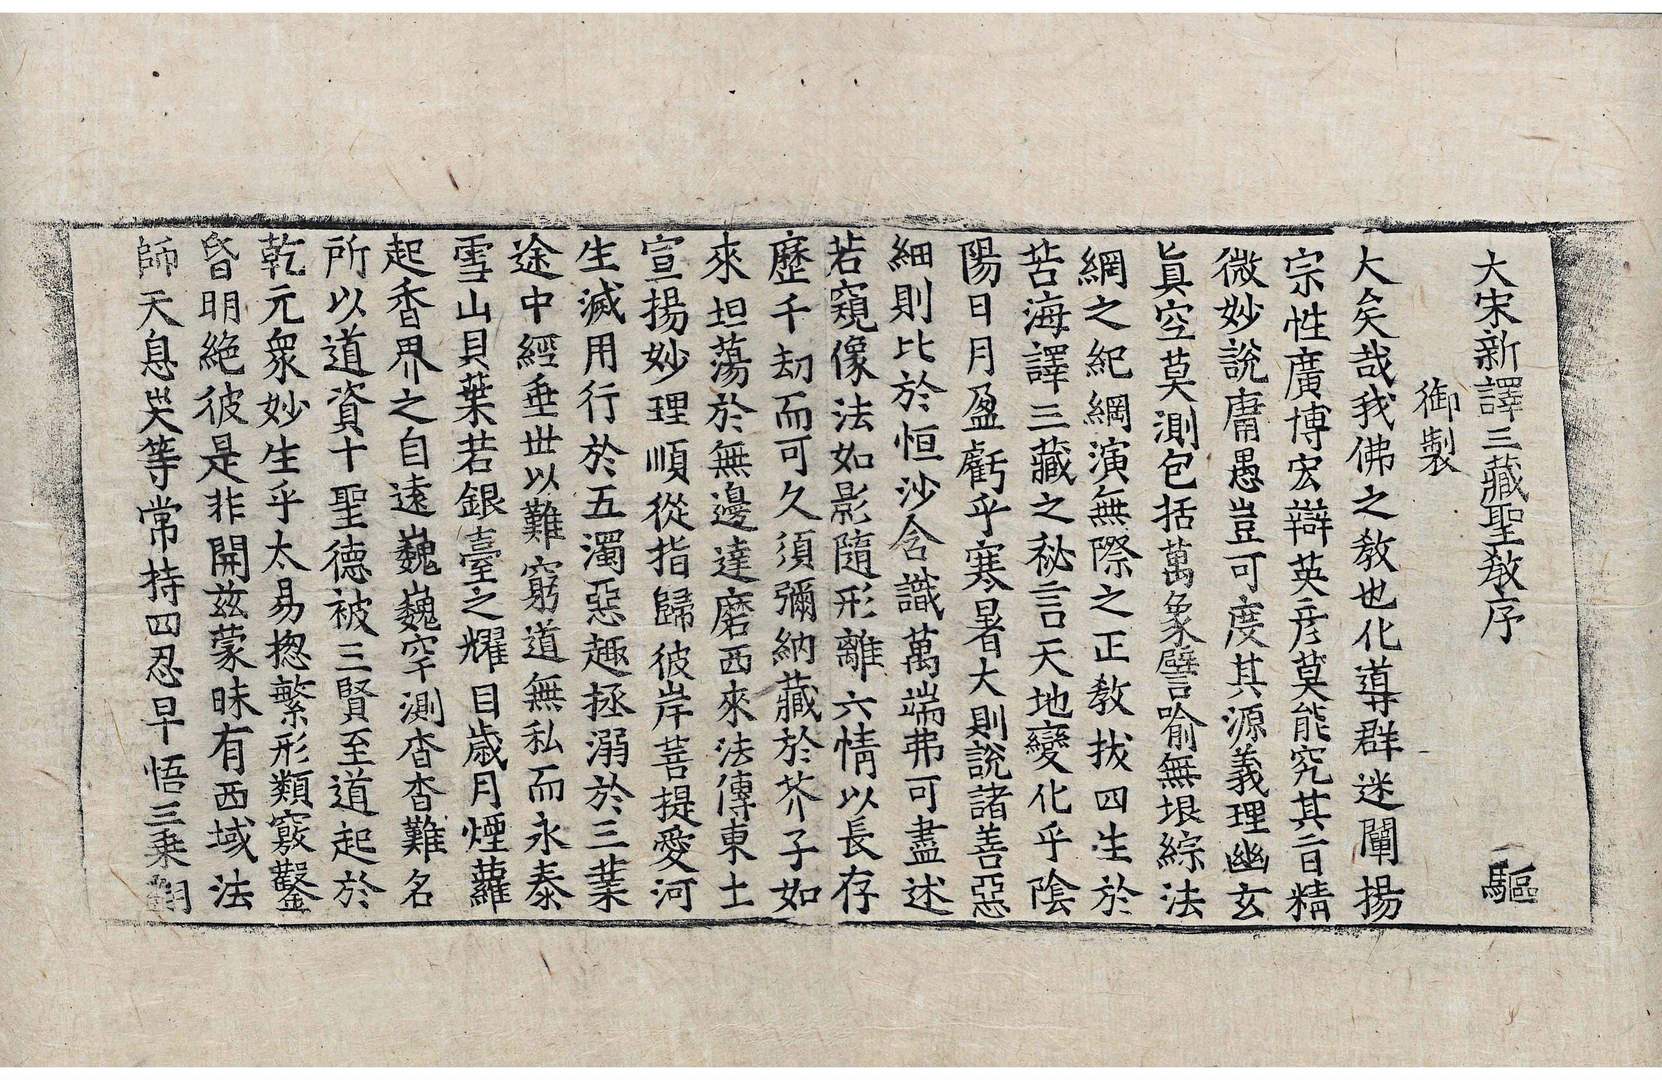 大宋新譯三藏聖教序 驅
御製
大矣哉我佛之教也化導群迷闡揚
宗性廣博宏辯英彦莫能究其旨精
微妙說庸愚豈可度其源義理幽玄
眞空莫測包括萬象譬喻無垠綜法
綱之紀綱演無際之正教拔四生於
苦海譯三藏之秘言天地變化乎陰
陽日月盈虧乎寒暑大則說諸善惡
細則比於恒沙含識萬端弗可盡述
若窺像法如影隨形離六情以長存
歷千劫而可久須彌納藏於芥子如
來坦蕩於無邊達磨西來法傳東土
宣揚妙理順從指歸彼岸菩提愛河
生滅用行於五濁惡趣拯溺於三業
途中經垂世以難窮道無私而永泰
雪山貝葉若銀臺之耀目歲月煙蘿
起香界之自遠巍巍罕測杳杳難名
所以道資十聖德被三賢至道起於
乾元衆妙生乎太易揔繁形類竅鑿
昏明絶彼是非開兹蒙昧有西域法
師天息灾等常持四忍早悟三乗翻